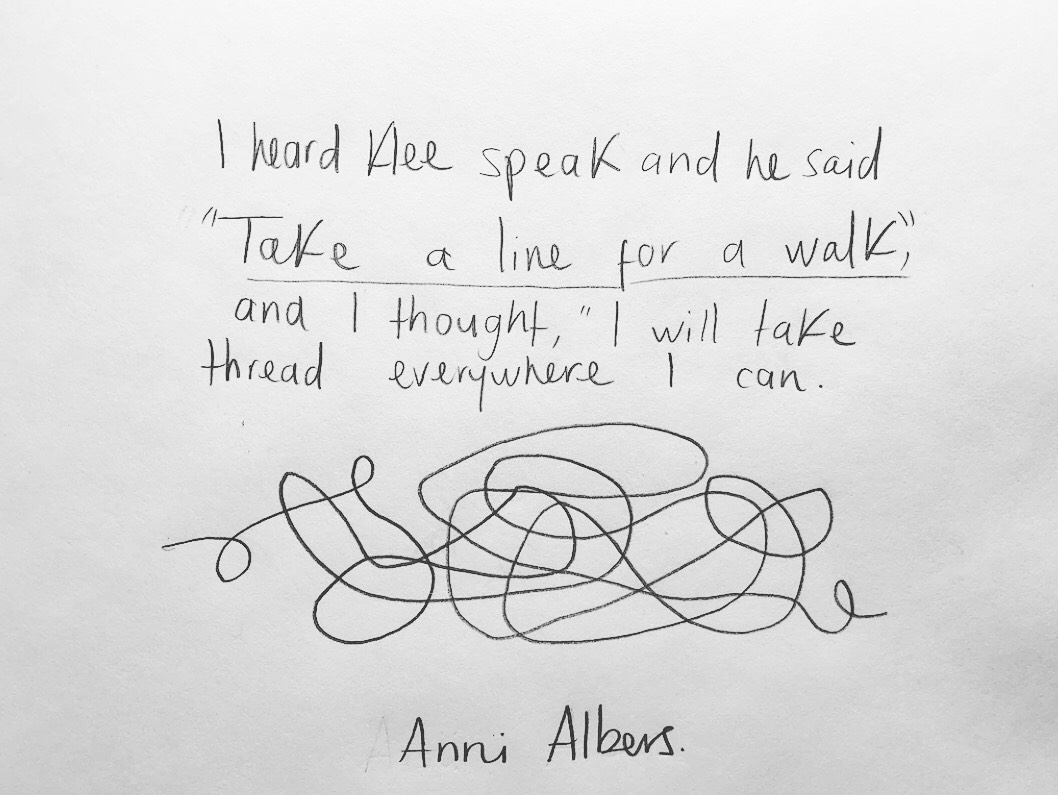 I heard Klee speak and he said
"Take a line for a walk,"
and I thought, "I will take
thread everywhere I can.
Anni Albers.